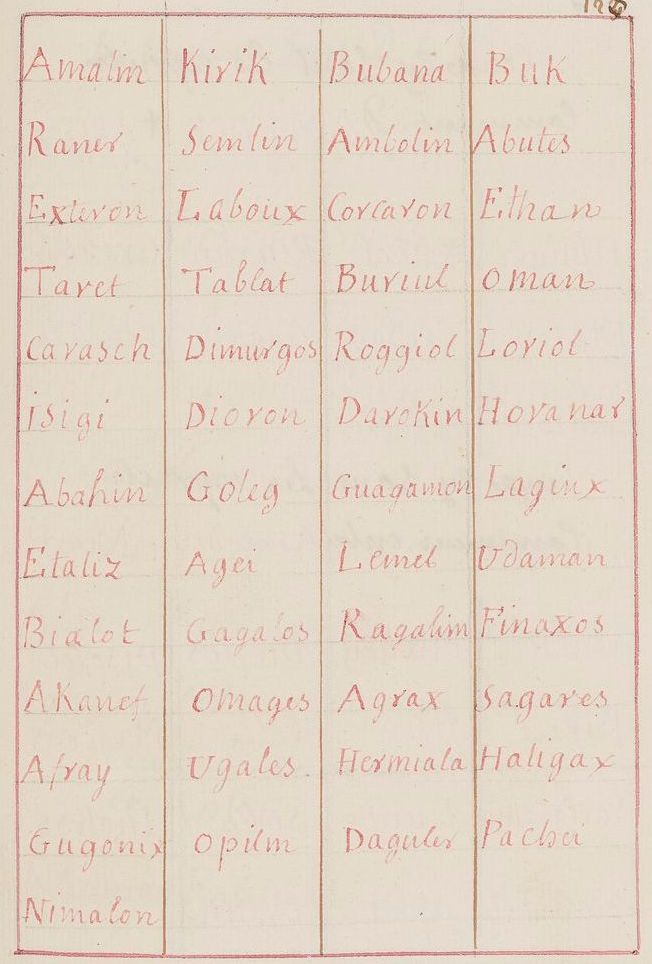 Amalin Kirik Bubana Buk
Raner Semlin Ambolin Abutes
Exteron Laboux Corcaron Ethan
Taret Tablat Buriul Oman
Carasch Dimurgos Roggiol Loriol
isigi Dioron Darokin Horanar
Abahin Goleg Guagamon Laginx
Etaliz Agei Lemel Udaman
Bialot Gagalos Ragalim Finaxos
Akanef Omages Agrax Sagares
Afray Ugales Hermiala Haligax
Gugonix Opilm Daguler Pachei
Nimalon